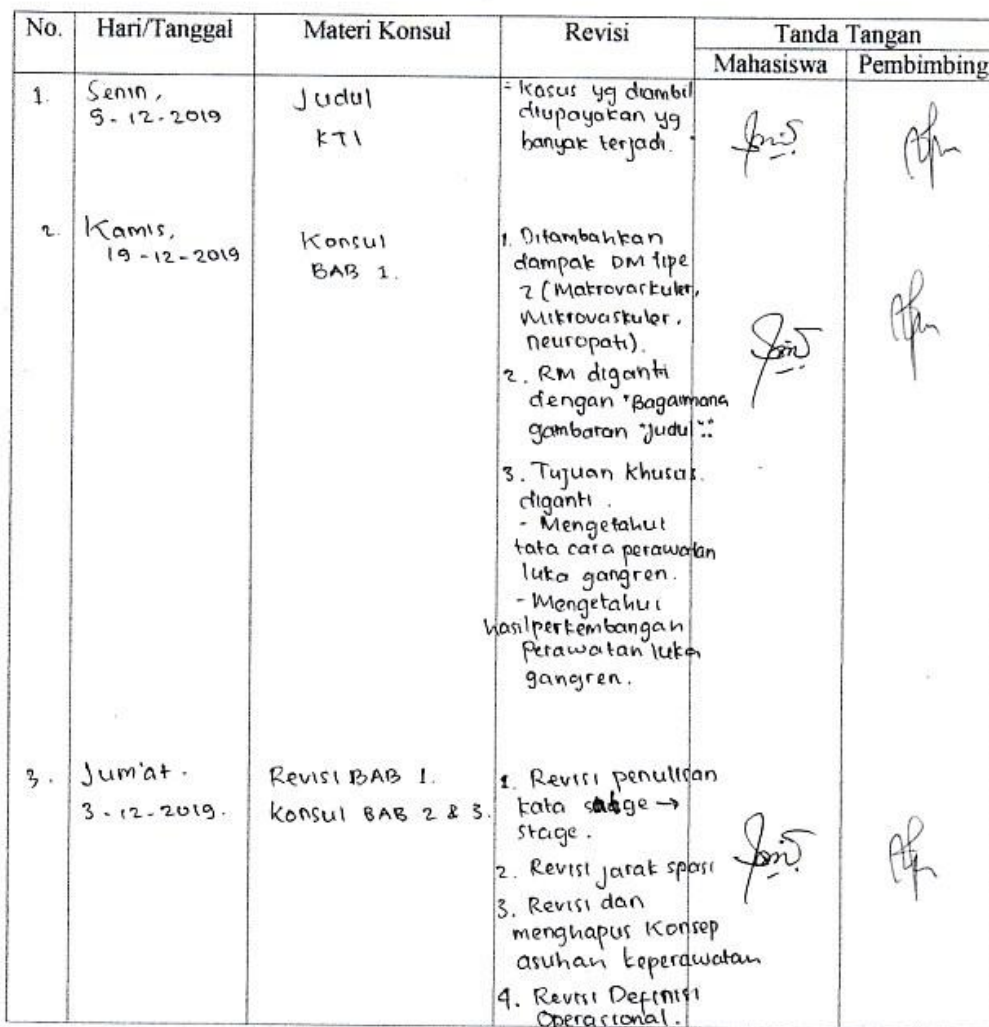 No. Hari/Tanggal Materi Konsul Revisi Tanda Tangan
Mahasiswa Pembimbing
1. Senin, 9-12-2019
Judul KTI
- Kasus yg diambil
diupayakan yg
banyak terjadi.
2. Kamis, 19-12-2019
Konsul BAB 1.
1. Ditambahkan
dampak DM tipe
2 (Makrovaskuler,
Mikrovaskuler,
neuropati).
2. RM diganti
dengan "Bagaimana
gambaran "Judul"..
3. Tujuan Khusus.
diganti.
- Mengetahui
tata cara perawatan
luka gangren.
- Mengetahui
hasil perkembangan
Perawatan luka
gangren.
3. Jum'at.
3-12-2019.
Revisi BAB 1.
Konsul BAB 2 & 3.
1. Revisi penulisan
kata satge →
stage.
2. Revisi jarak spasi
3. Revisi dan
menghapus Konsep
asuhan keperawatan
4. Revisi Definisi
Operasional.